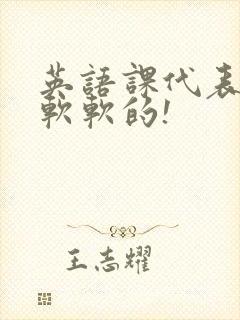 英語課代表
軟軟的!
王志耀